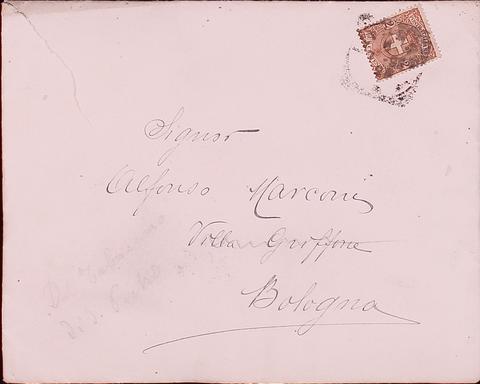 Signor
Alfonso Marconi
Villa Griffone
Bologna